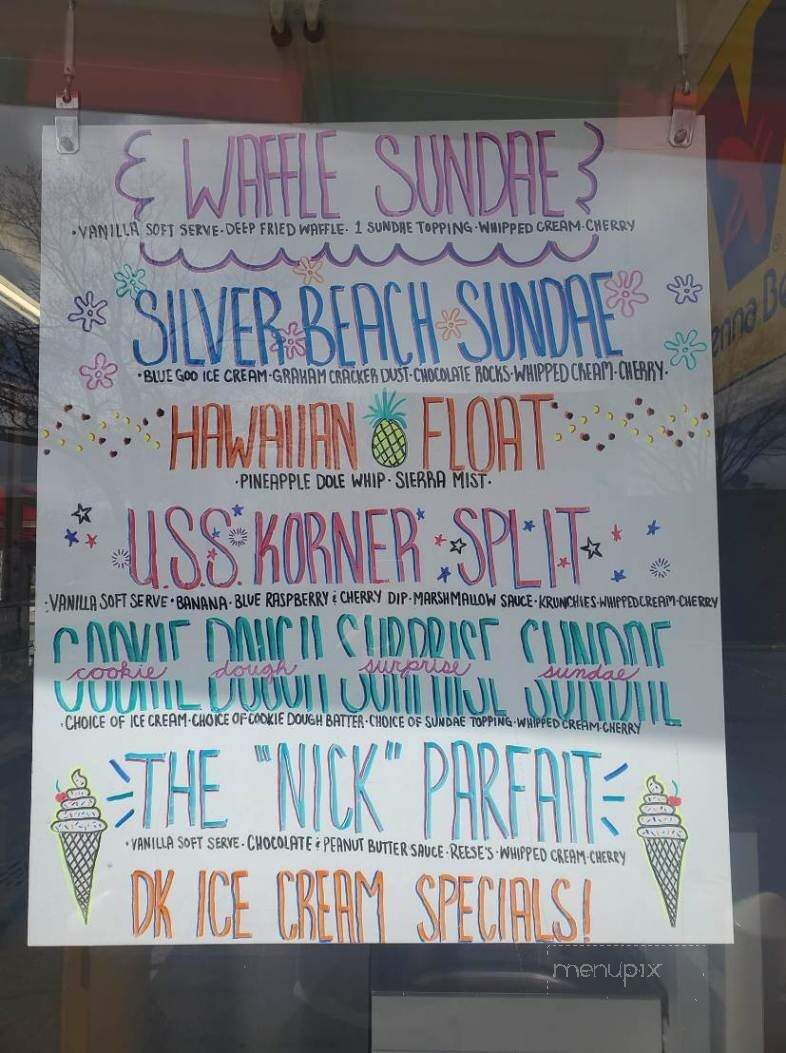 WAFFLE SUNDAE
•VANILLA SOFT SERVE•DEEP FRIED WAFFLE• 1 SUNDAE TOPPING•WHIPPED CREAM•CHERRY
SILVER BEACH SUNDAE
•BLUE GOO ICE CREAM•GRAHAM CRACKER DUST•CHOCOLATE ROCKS•WHIPPED CREAM•CHERRY•
HAWAIIAN FLOAT
•PINEAPPLE DOLE WHIP• SIERRA MIST•
U.S.S. KORNER SPLIT
•VANILLA SOFT SERVE•BANANA•BLUE RASPBERRY & CHERRY DIP•MARSHMALLOW SAUCE•KRUNCHIES•WHIPPED CREAM•CHERRY
COOKIE DOUGH SURPRISE SUNDAE
cookie dough surprise sundae
•CHOICE OF ICE CREAM•CHOICE OF COOKIE DOUGH BATTER•CHOICE OF SUNDAE TOPPING•WHIPPED CREAM•CHERRY
THE "NICK" PARFAIT
•VANILLA SOFT SERVE•CHOCOLATE & PEANUT BUTTER SAUCE•REESE'S•WHIPPED CREAM•CHERRY
DK ICE CREAM SPECIALS!
menupix